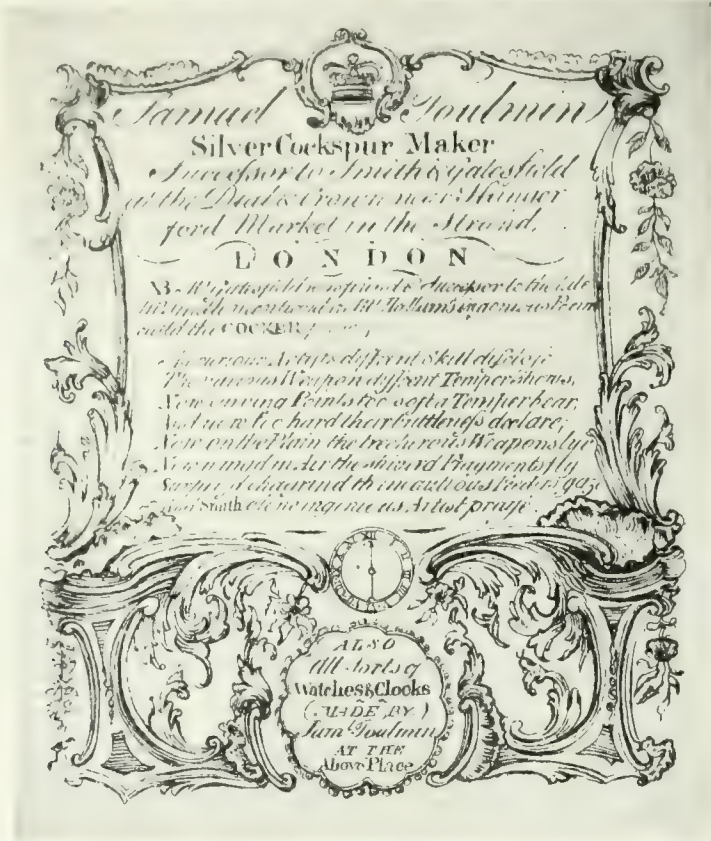 Samuel Toulmin
Silver Cockspur Maker
Successor to Smith & Gatesfield
at the Dial & Crown near Hunger
ford Market in the Strand,
LONDON
NB Mr Gatesfield Successor to the late
Mr Smith mentiond in Mr Hallam's ingenious Poem
calld the COCKER
curious Artists diffrent Skill disclose
The various Weapon diffrent Temper shows,
Now curving Points too soft a Temper bear,
And now too hard their brittleness declare,
Now on the Plain the treach'rous Weapons lye
Now wing'd in Air the shiver'd Fragments fly
Surpriz'd chagrind th' incautious Feeders gaze
Smith ingenious Artist praise
ALSO
All Sorts of
Watches & Clocks
(MADE BY)
Saml. Toulmin
AT THE
Above Place